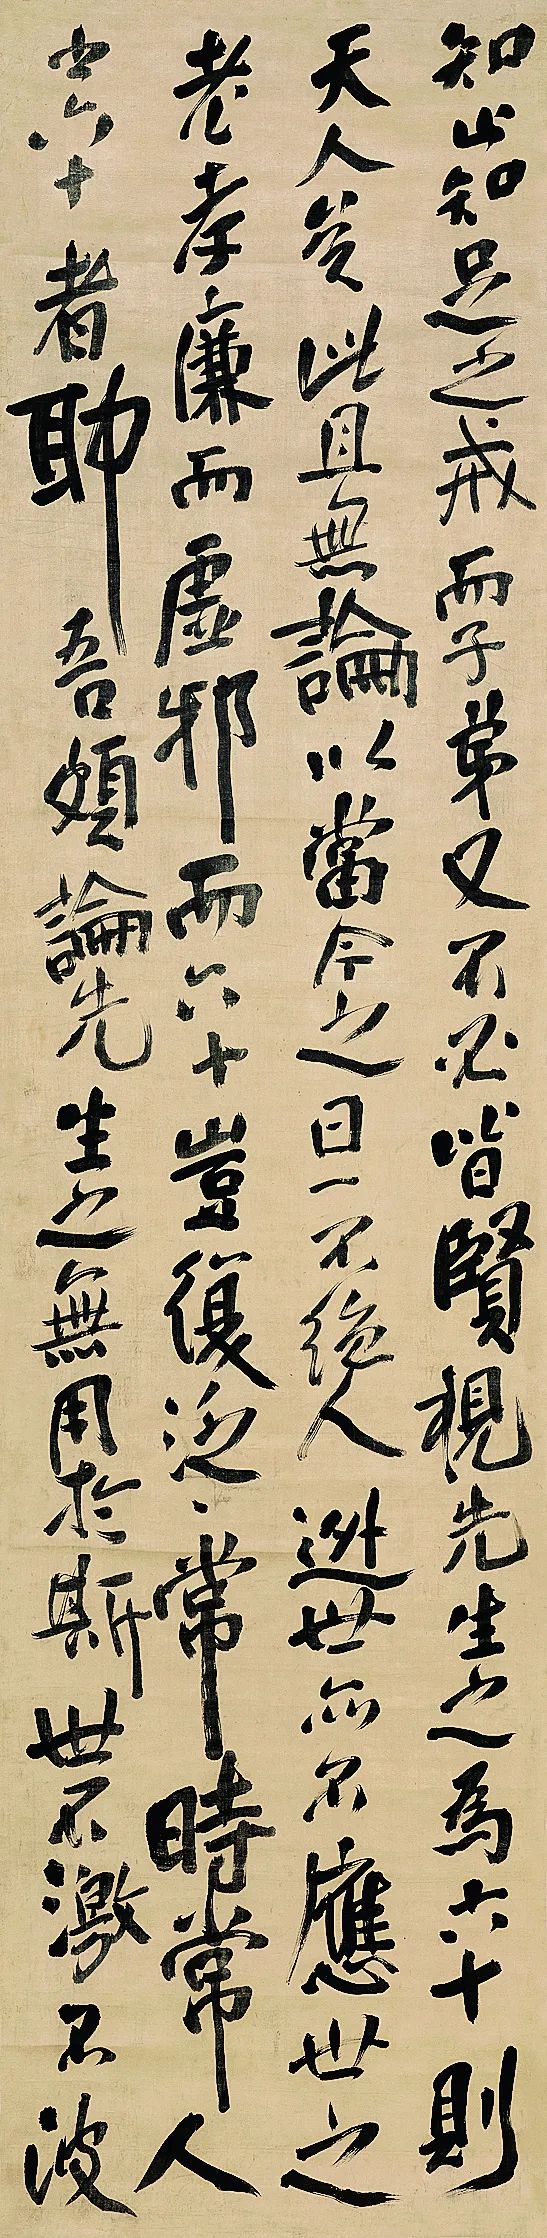 知止知足之戒而子弟又不必皆賢視先生之為六十則
天人矣此且無論以當今之日一不絶人逃世亦不應世之
老孝廉而虛邪而六十豈復泛泛常時常人
之六十者耶吾頗論先生之無用於斯世不激不波